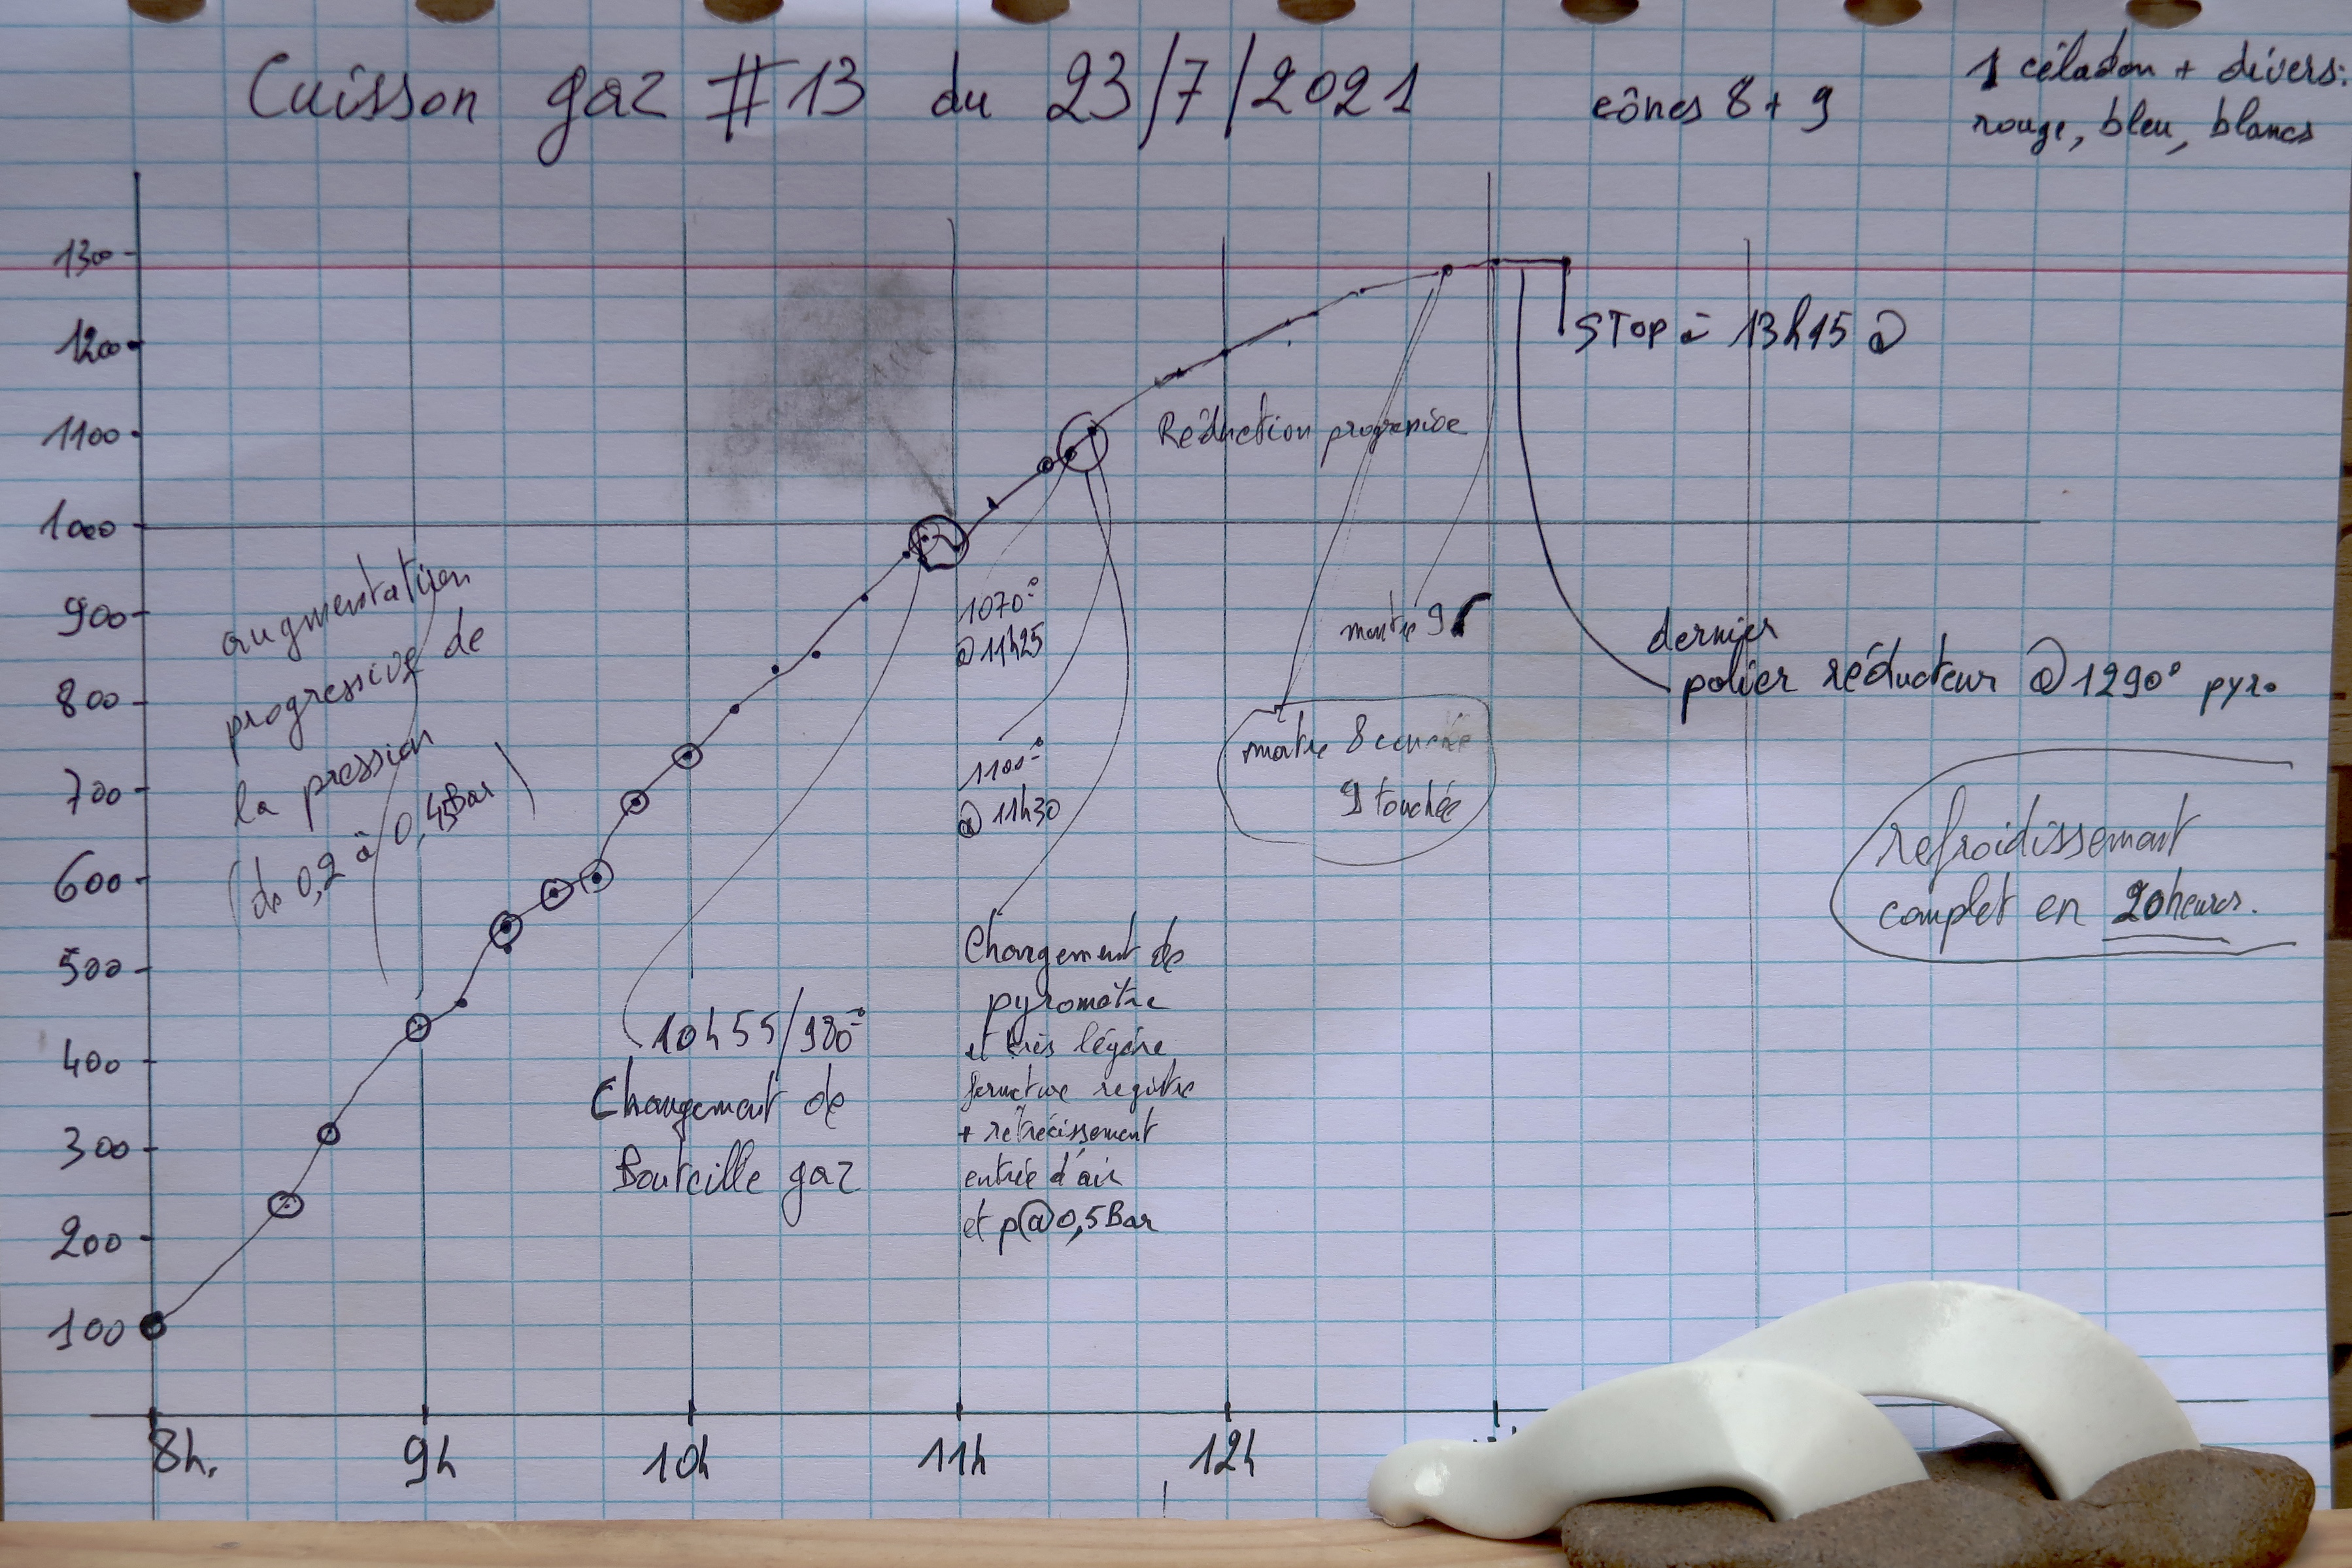 Cuisson gaz #13 du 23/7/2021
cônes 8 + 9
1 céladon + divers:
rouge, bleu, blancs
1300
1200
1100
1000
900
800
700
600
500
400
300
200
100
8h.
9h
10h
11h
12h
augmentation
progressive de
la pression
(de 0,2 à 0,45Bar)
10h55/980°
Changement de
Bouteille gaz
1070°
@ 11h25
1100°
@ 11h30
Changement de
pyromètre
et très légère
fermeture registre
+ rétrécissement
entrée d'air
et p@0,5Bar
Réduction progressive
montre 8 couchée
9 touchée
montre 9
STOP à 13h15 @
dernier
palier réducteur @ 1290° pyro
refroidissement
complet en 20heures.